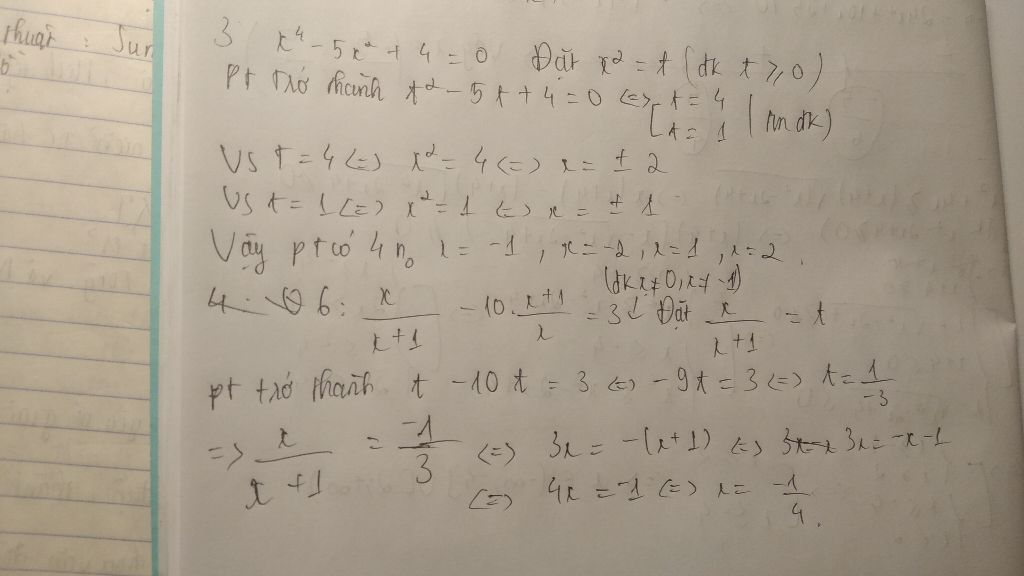 thuật : Sur
3 x⁴ - 5x² + 4 = 0 Đặt x² = t (đk t ≥ 0)
pt trở thành t² - 5t + 4 = 0 <=> [t = 4
[t = 1 | tm đk)
Vs t = 4 <=> x² = 4 <=> x = ± 2
Vs t = 1 <=> x² = 1 <=> x = ± 1
Vậy pt có 4 n₀ x = -1 , x = -2 , x = 1 , x = 2 .
(đk x ≠ 0, x ≠ -1)
6 : x/(x+1) - 10 . (x+1)/x = 3 ↓ Đặt x/(x+1) = t
pt trở thành t - 10t = 3 <=> -9t = 3 <=> t = 1/-3
=> x/(x+1) = -1/3 <=> 3x = -(x+1) <=> 3x = -x-1
<=> 4x = -1 <=> x = -1/4 .